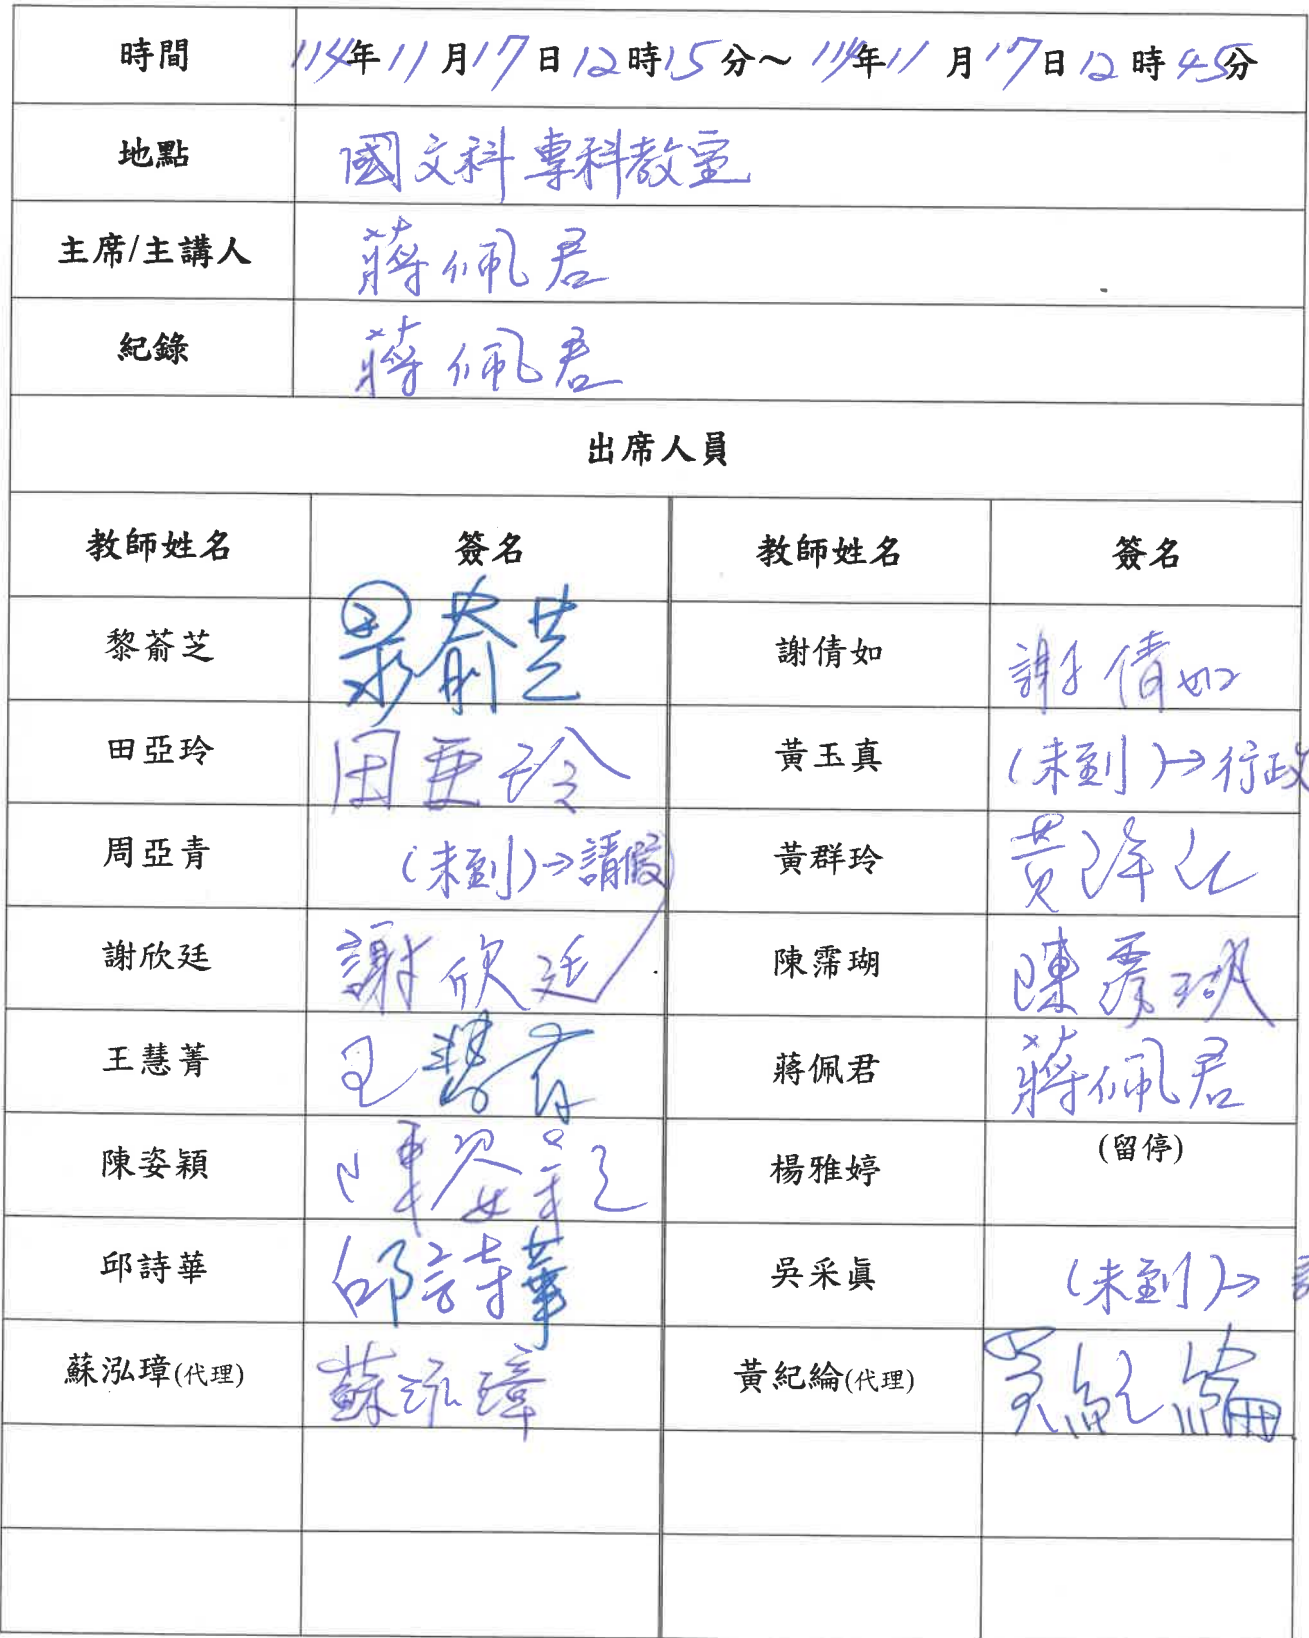 時間 114年11月17日12時15分～114年11月17日12時45分
地點 國文科專科教室
主席/主講人 蔣佩君
紀錄 蔣佩君
出席人員
教師姓名 簽名 教師姓名 簽名
黎萮芝 黎萮芝 謝倩如 謝倩如
田亞玲 田亞玲 黃玉真 (未到)→行政
周亞青 (未到)→請假 黃群玲 黃群玲
謝欣廷 謝欣廷 陳霈瑚 陳霈瑚
王慧菁 王慧菁 蔣佩君 蔣佩君
陳姿穎 陳姿穎 楊雅婷 (留停)
邱詩華 邱詩華 吳采眞 (未到)→
蘇泓璋(代理) 蘇泓璋 黃紀綸(代理) 黃紀綸